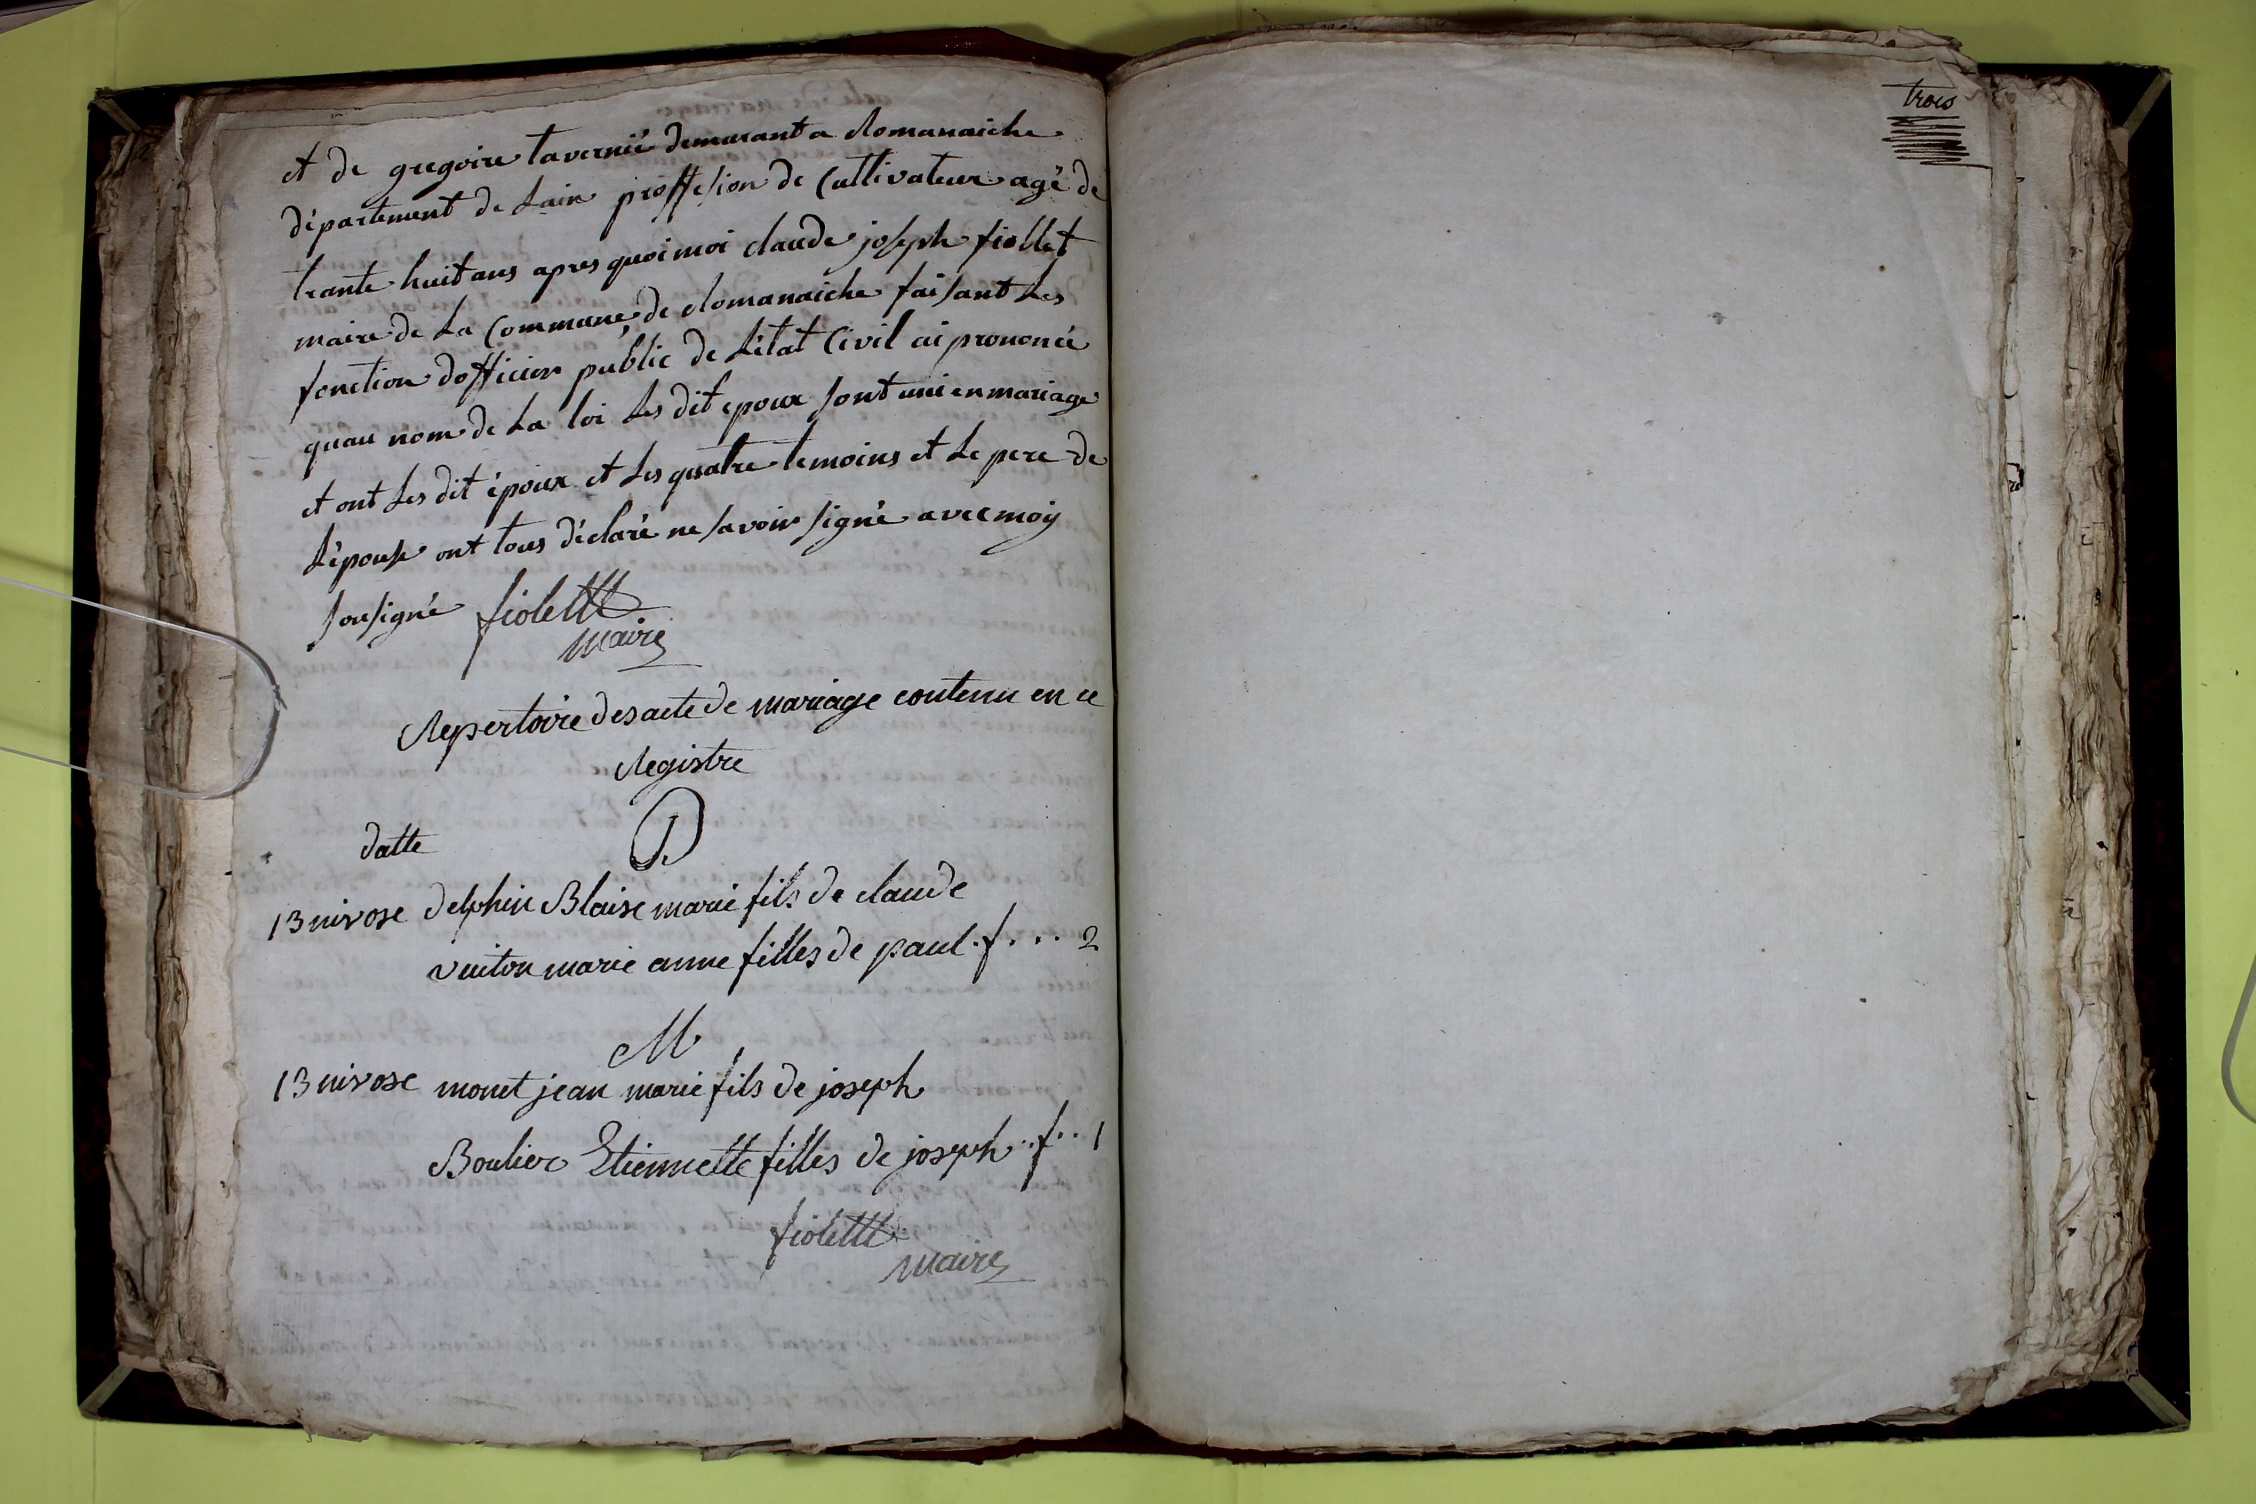 et de gregoire tavernié demurant a Romanaiche
département de Lain proffesion de Cultivateur agé de
trante huit ans apres quoi moi claude joseph fiollet
maire de La Commune de Romanaiche faisant Les
fonction dofficier public de Létat Civil ai prononcé
quau nom de La loi Les dit epoux sont uni en mariage
et ont Les dit époux et Les quatre temoins et Le pere de
Lépouse ont tous déclaré ne savoir signé avec moy
sousigné fiolettt
maire
Repertoire des acte de mariage contenu en ce
Registre
datte D
13 nivose delphin Blaise marie fils de claude
vuiton marie anne filles de paul . f . . . 2
M
13 nivose monet jean marie fils de joseph
Boulier Etiennette filles de joseph . . f . . 1
fiolettt
maire
trois